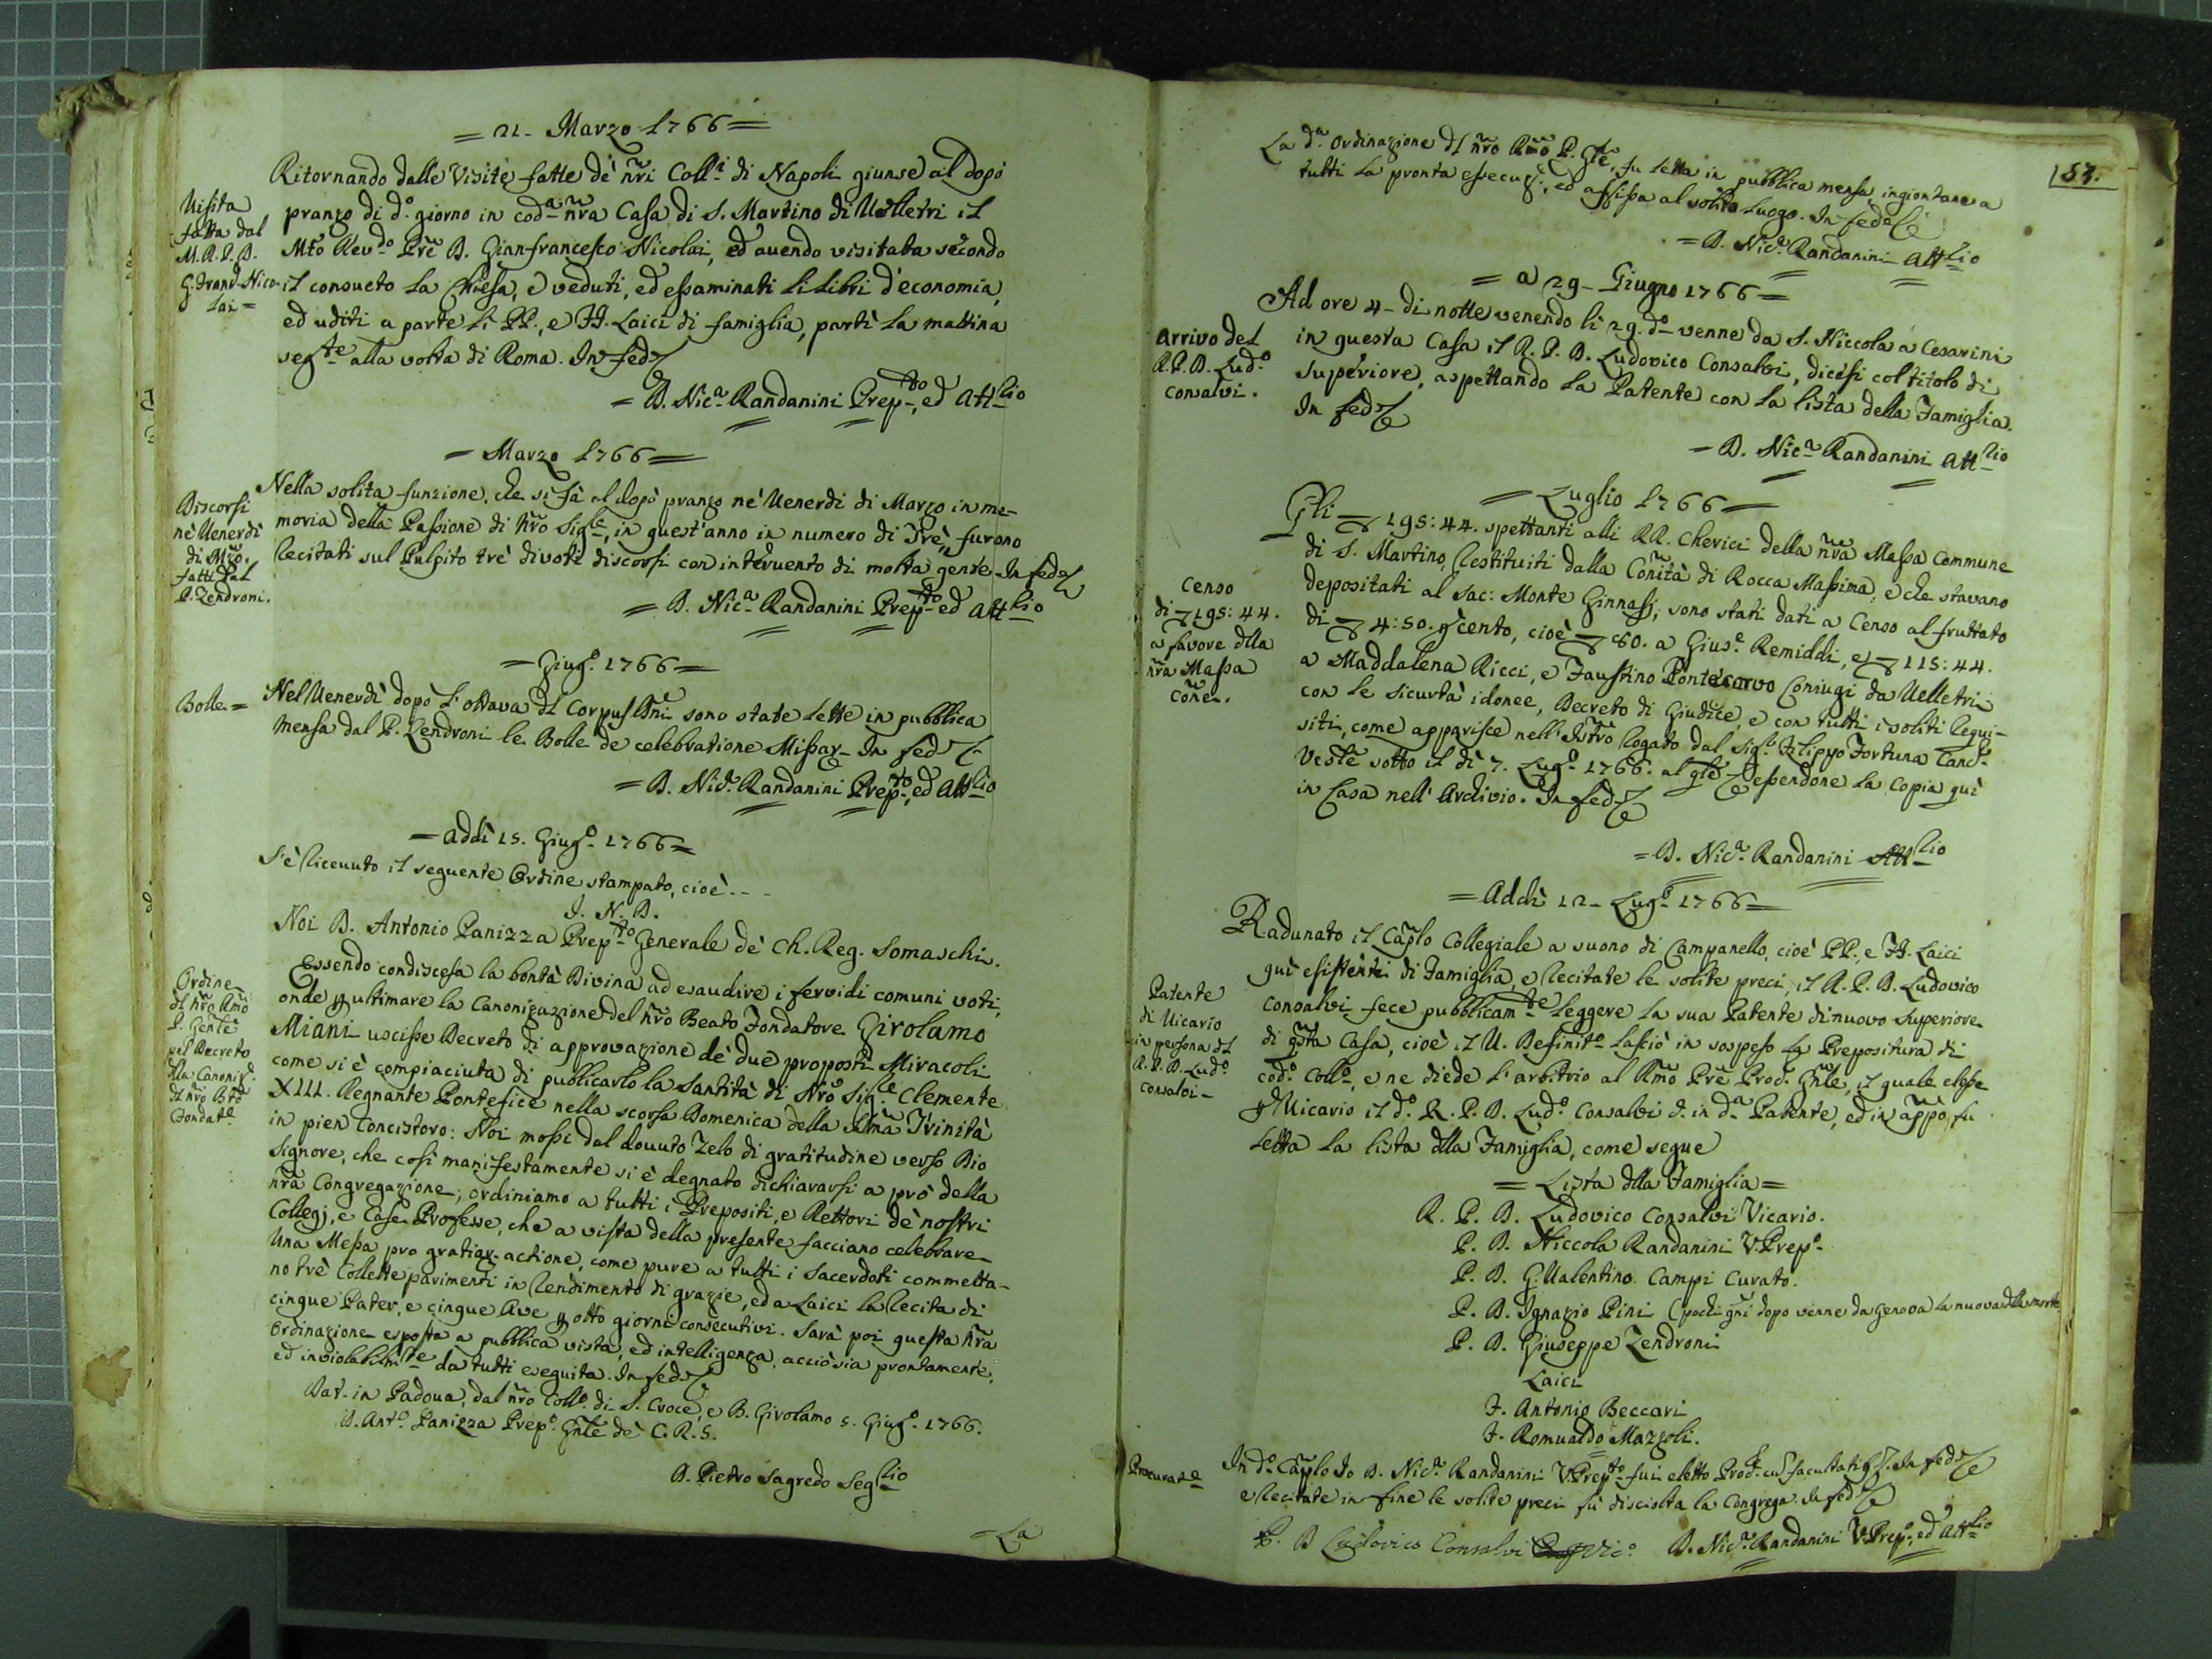 = 21 - Marzo 1766 =
Ritornando dalle Visite fatte de' ñri Coll.i di Napoli giunse al dopo
pranzo di d.o giorno in cod.a ñra Casa di S. Martino di Velletri il
Mto Rev.do Prẽ D. Gianfrancesco Nicolai, ed avendo visitata secondo
il consueto la Chiesa, e veduti, ed essaminati li libri d'economia,
ed uditi a parte li PP., e FF. Laici di famiglia, partì la mattina
seg.te alla volta di Roma. In fede
= D. Nic.a Randanini Prep.to, ed Att.lio
Visita
fatta dal
M. R. P. D.
G. Fran.o Nico
lai =
= Marzo 1766 =
Nella solita funzione, che si fà al dopo pranzo ne' Venerdi di Marzo in me-
moria della Passione di Ñro Sig.re, in quest'anno in numero di Trè, furono
recitati sul Pulpito trè divoti discorsi con intervento di molta gente. In fede
= D. Nic.a Randanini Prep.to ed Att.lio
Discorsi
ne' Venerdì
di Mzo.
fatti dal
P. Zendroni.
= Giug.o 1766 =
Nel Venerdì dopo l'ottava di Corpus Dñi sono state lette in pubblica
mensa dal P. Zendroni le Bolle de celebratione Missar. In fede
= D. Nic.a Randanini Prep.to, ed Att.lio
Bolle =
= addì 15. Giug.o 1766 =
S'è ricevuto il seguente Ordine stampato, cioè - - -
I. N. D.
Noi D. Antonio Panizza Prep.to Generale de' Ch. Reg. Somaschi.
Essendo condiscesa la bontà Divina ad esaudire i fervidi comuni voti,
onde p ultimare la Canonizazione del ñro Beato Fondatore Girolamo
Miani uscisse Decreto di approvazione de' due proposti Miracoli
come si è compiaciuta di publicarlo la Santità di Ñro Sig.re Clemente
XIII. Regnante Pontefice nella scorsa Domenica della Sñma Trinità
in pien Concistoro: Noi mossi dal dovuto Zelo di gratitudine verso Dio
Signore, che così manifestamente si è degnato dichiararsi a prò della
ñra Congregazione, ordiniamo a tutti i Prepositi, e Rettori de' nostri
Collegj, e Case Professe, che a vista della presente facciano celebrare
una Messa pro gratiar. actione, come pure a tutti i Sacerdoti commetta-
no trè Collette parimenti in rendimento di grazie, ed a Laici la recita di
cinque Pater, e cinque Ave p otto giorni consecutivi. Sarà poi questa ñra
Ordinazione esposta a pubblica vista, ed intelligenza, acciò sia prontamente,
ed inviolabilm.te da tutti eseguita. In fede
Dat. in Padova, dal ñro Coll.o di S. Croce, e B. Girolamo 5. Giug.o 1766.
D. Ant.o Panizza Prep.o Gñle de' C. R. S.
D. Pietro Sagredo Seg.lio
Ordine
dl ñro Rmõ
P. Genle
pel Decreto
dlla Canoniz.e
dl ñro Bto
Fondat.e
= La
57.
La d.a Ordinazione dl ñro Rmõ P. Gle, fu letta in pubblica mensa, ingiontane a
tutti la pronta essecuz.e, ed affissa al solito luogo. In fede
= D. Nic.a Randanini Att.lio
= a 29 - Giugno 1766 =
Ad ore 4 - di notte venendo li 29. d.o venne da S. Niccola a Cesarini
in questa Casa il R. P. D. Ludovico Consalvi, dicesi col titolo di
Superiore, aspettando la Patente con la lista della Famiglia.
In fede
= D. Nic.a Randanini Att.lio
Arrivo del
R. P. D. Lud.o
Consalvi.
= Luglio 1766 =
Gli 195:44. spettanti alli RR. Cherici della ñra Massa Commune
di S. Martino, restituiti dalla Coñità di Rocca Massima, e che stavano
depositati al Sac: Monte Ginnasj, sono stati dati a Censo al fruttato
di 4:50. p cento, cioè 80. a Gius.e Remiddi, e 115:44.
a Maddalena Ricci, e Faustino Pontecorvo Coniugi da Velletri
con le sicurtà idonee, Decreto di Giudice, e con tutti i soliti requi-
siti, come apparisce nell'Istrõ rogato dal Sig.e Filippo Fortuna Canc.e
Veste sotto il dì 7. Lug.o 1766. al qle essendone la copia quì
in Casa nell'Archivio. In fede
= D. Nic.a Randanini Att.lio
Censo
di 195:44.
a favore dlla
ñra Massa
coñe.
= Addì 12 - Lug.o 1766 =
Radunato il Caplo Collegiale a suono di Campanello, cioè PP., e FF. Laici
quì esistenti di Famiglia, e recitate le solite preci, il R. P. D. Ludovico
Consalvi fece pubblicam.te leggere la sua Patente di nuovo Superiore
di qsta Casa, cioè il V. Definit.o lasciò in sospeso la Prepositura di
cod.o Coll.o, e ne diede l'arbitrio al Rmõ Prẽ Proc. Gñle, il quale elesse
p Vicario il d.o R. P. D. Lud.o Consalvi in d.a Patente, ed in appõ, fu
letta la lista dlla Famiglia, come segue
Patente
di Vicario
in persona dl
R. P. D. Lud.o
Consalvi -
= Lista dlla Famiglia =
R. P. D. Ludovico Consalvi Vicario.
P. D. Niccola Randanini V. Prep.o
P. D. G. Valentino Campi Curato.
P. D. Ignazio Pini (pochi gñi dopo venne da Genova la nuova dlla morte
P. D. Giuseppe Zendroni
Laici
F. Antonio Beccari
F. Romualdo Mazzoli.
In d.o Caplo Io D. Nic.a Randanini V. Prep.to fui eletto Proc.e cu facultatib In fede
e recitate in fine le solite preci fù disciolta la Congrega. In fede
Procurat.e
P. D Ludovico Consalvi Vic.o D. Nic.a Randanini V. Prep.o, ed Att.lio